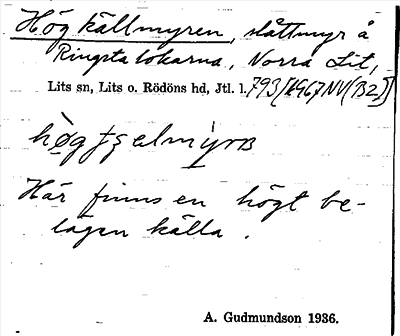 Högkällmyren, slåttmyr å
Ringsta lokarna, Norra Lit,
Lits sn, Lits o. Rödöns hd, Jtl. l. 793/[1967NV(B2)]
Här finns en högt be-
lägen källa.
A. Gudmundson 1936.